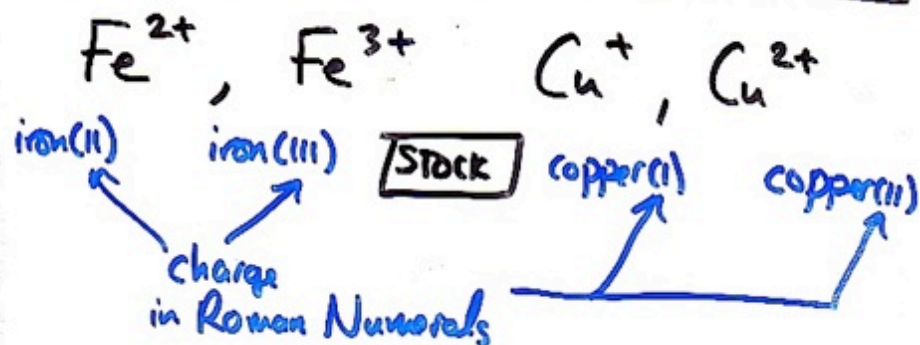 Fe²⁺, Fe³⁺ Cu⁺, Cu²⁺
iron(II) iron(III) STOCK copper(I) copper(II)
charge
in Roman Numerals